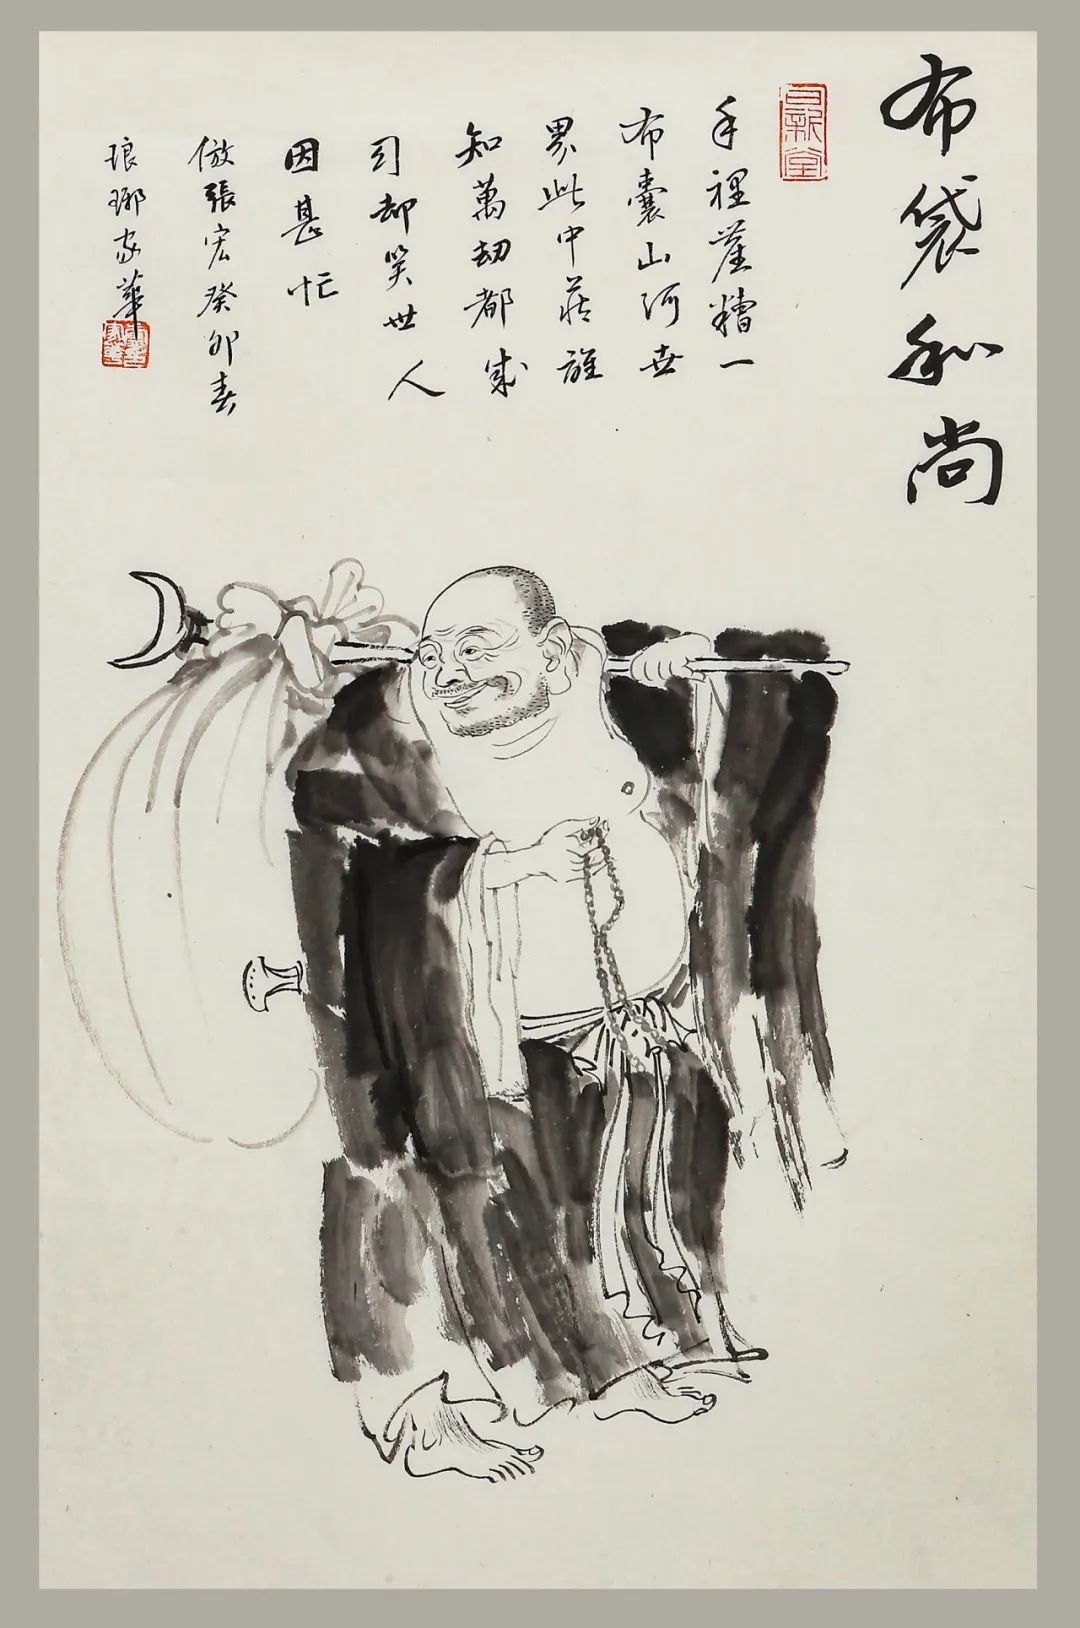 布袋和尚
日新堂
手裡藍糟一
布囊山河世
界此中藏誰
知萬劫都成
幻却笑世人
因甚忙
倣張宏癸卯春
琅琊家華